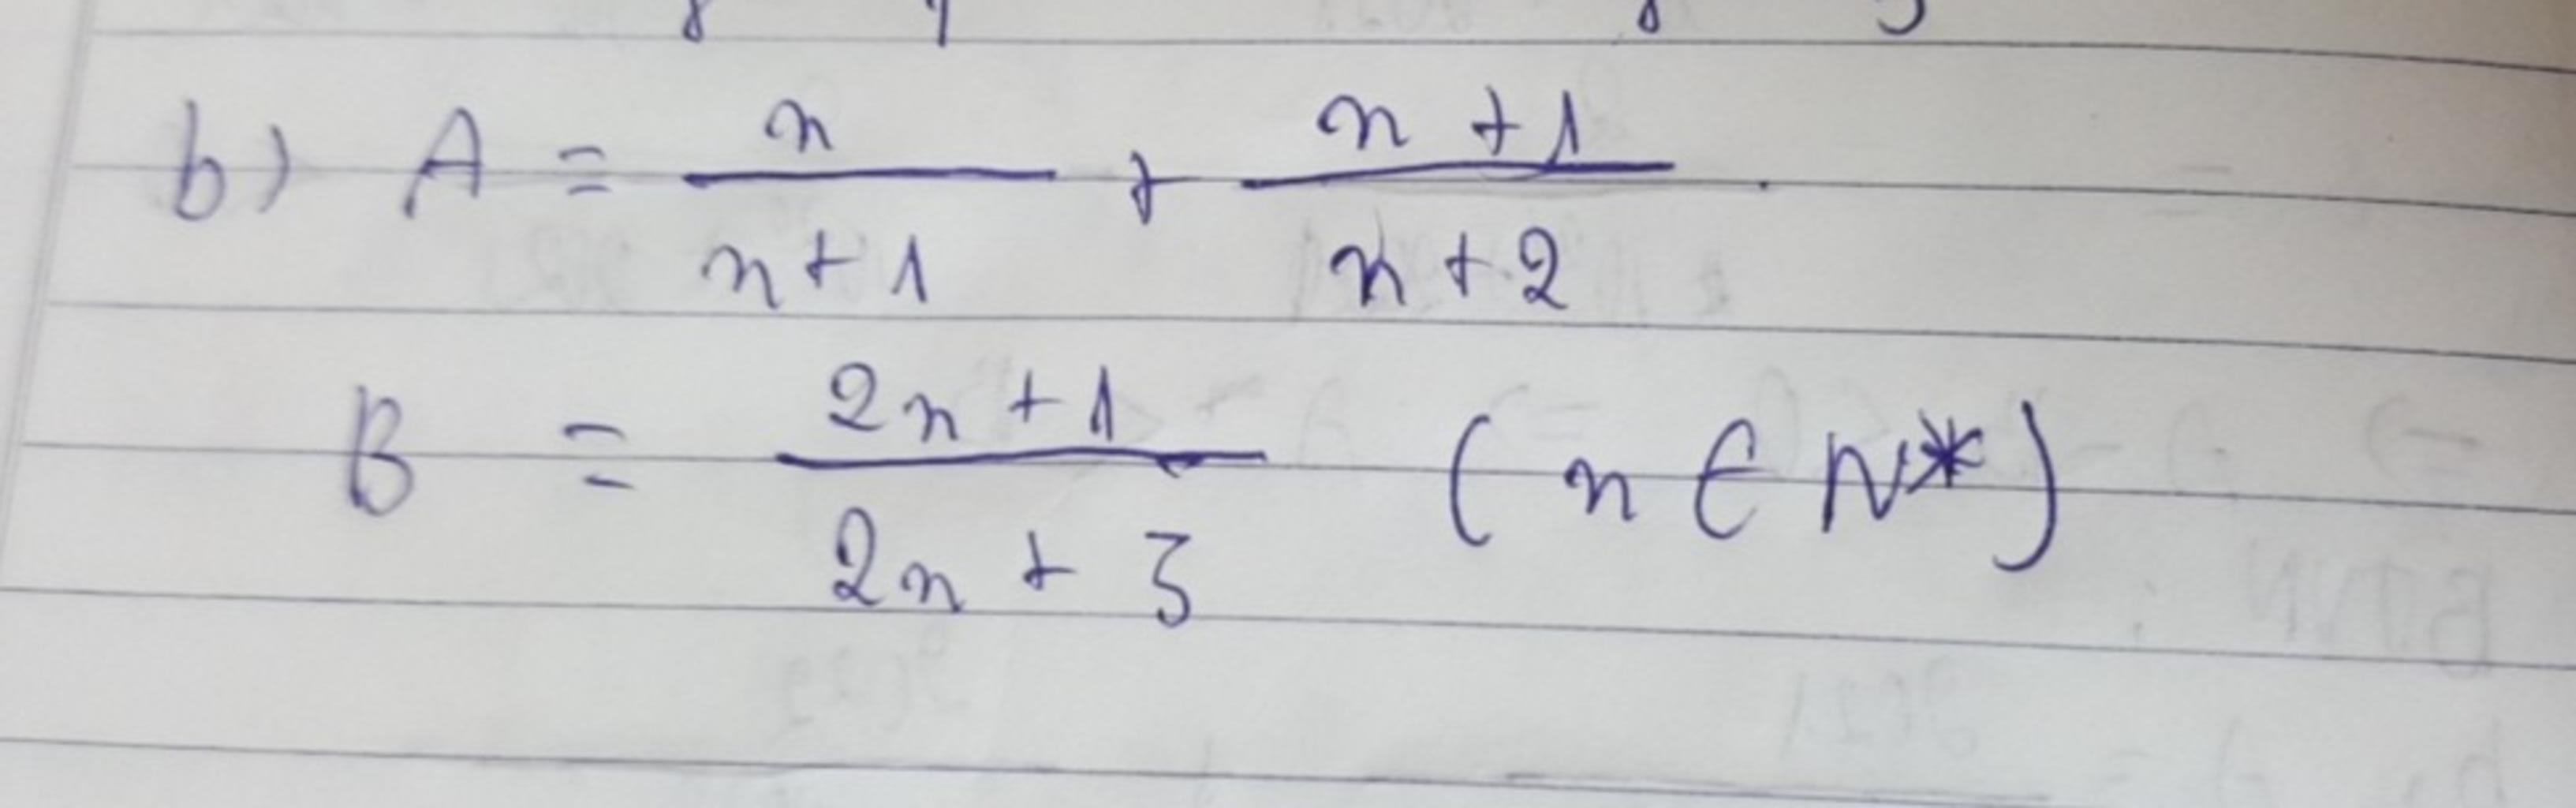 b) A = n/(n+1) + (n+1)/(n+2).
B = (2n+1)/(2n+3) (n ∈ N*)